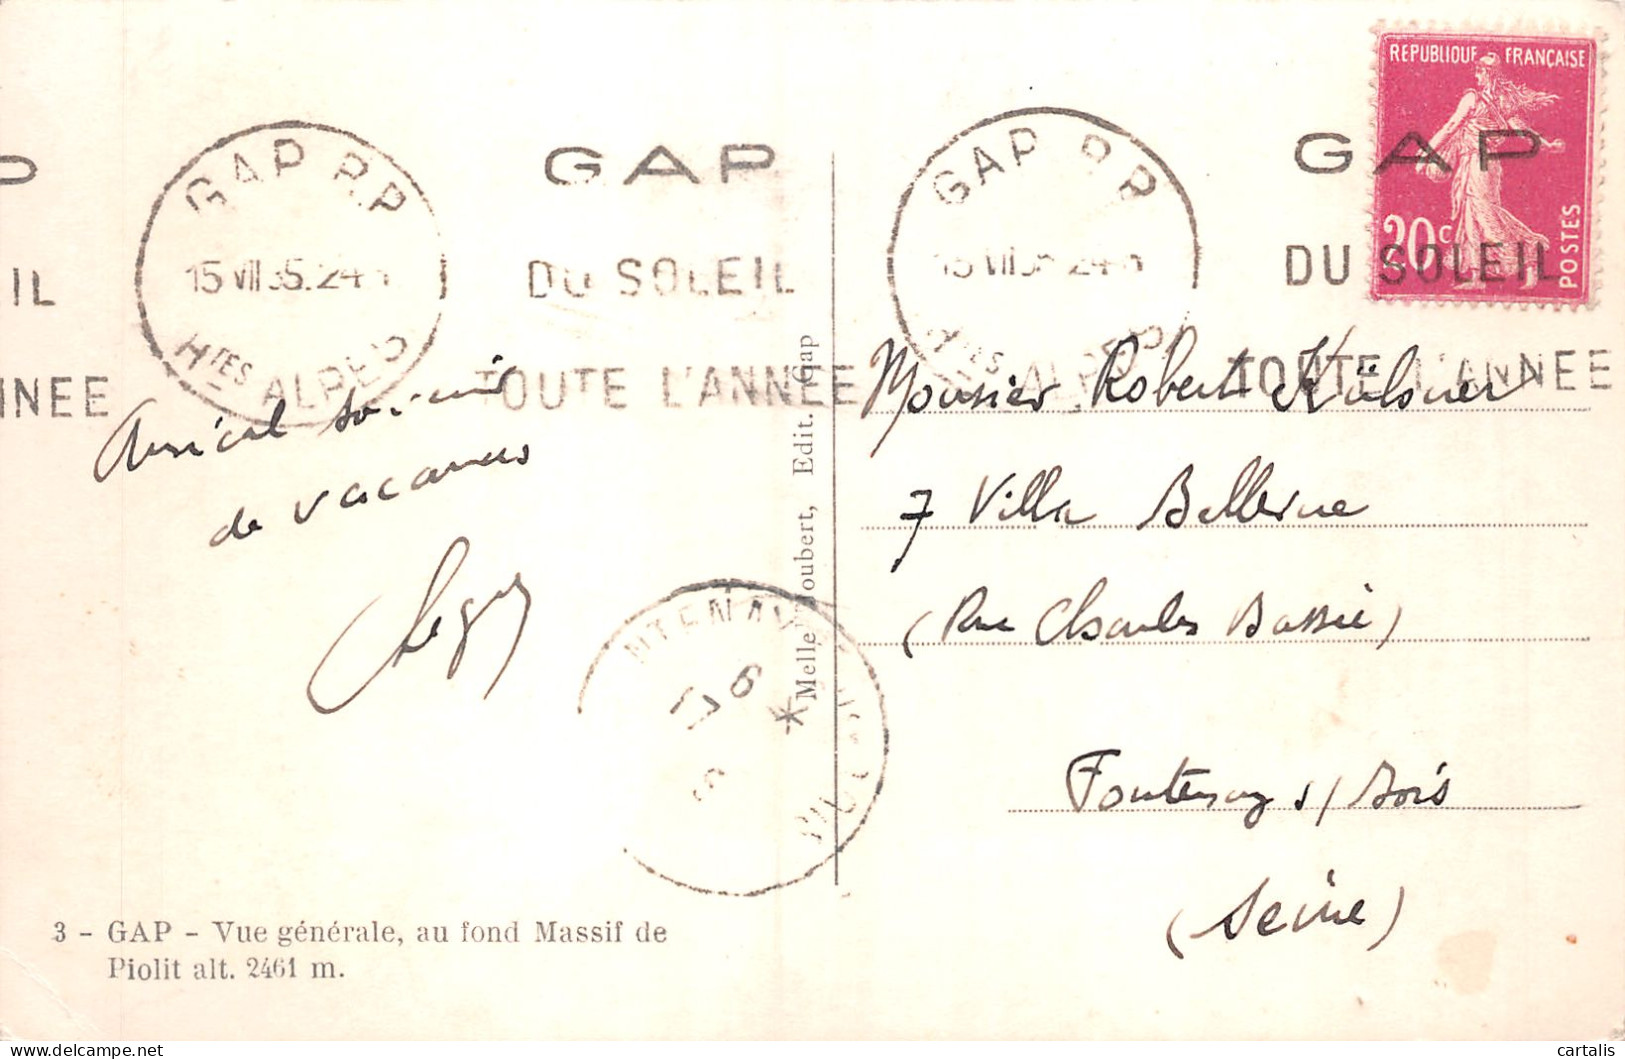 REPUBLIQUE FRANÇAISE
20c
POSTES
GAP R.P.
15 VII 35. 24 H
Htes ALPES
GAP
DU SOLEIL
TOUTE L'ANNEE
GAP R.P.
15 VII 35 24 H
Htes ALPES
GAP
DU SOLEIL
TOUTE L'ANNEE
P
IL
NNEE
Amical souvenir
de vacances
Monsieur Robert Külsner
7 Villa Bellevue
(Rue Charles Bassée)
Fontenay s/Bois
(Seine)
Melle Joubert, Edit. Gap
NTENAY
17 6
3 - GAP - Vue générale, au fond Massif de
Piolit alt. 2461 m.
cartalis